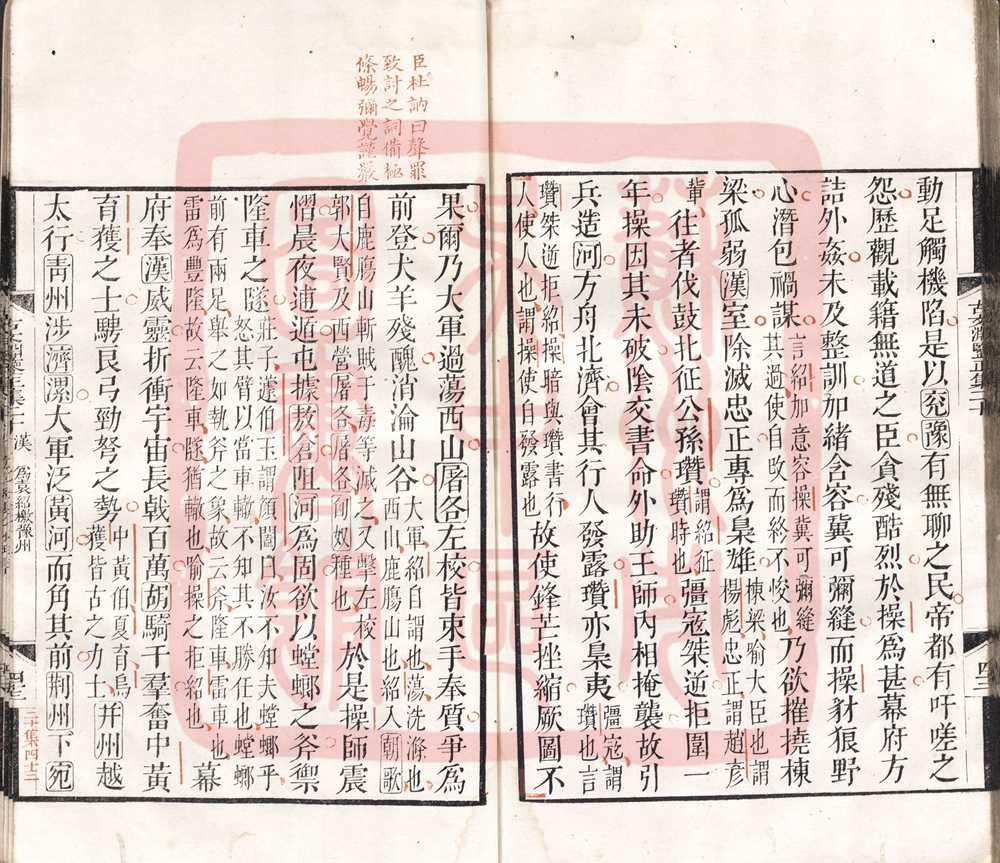 動足觸機陷是以兖豫有無聊之民帝都有吁嗟之
怨歷觀載籍無道之臣貪殘酷烈於操爲甚幕府方
詰外姦未及整訓加緒含容冀可彌縫而操豺狼野
心潛包禍謀言紹加意容操冀可彌縫其過使自改而終不悛也乃欲摧撓棟
梁孤弱漢室除滅忠正專爲梟雄棟梁喻大臣也謂楊彪忠正謂趙彦
輩往者伐鼓北征公孫瓚謂紹征瓚時也彊寇桀逆拒圍一
年操因其未破陰交書命外助王師內相掩襲故引
兵造河方舟北濟會其行人發露瓚亦梟夷彊寇謂瓚也言
瓚桀逆拒紹操暗與瓚書行人使人也謂操使自發露也故使鋒芒挫縮厥圖不
果爾乃大軍過蕩西山屠各左校皆束手奉質爭爲
前登犬羊殘醜消淪山谷大軍紹自謂也蕩洗滌也西山鹿腸山也紹入朝歌
自鹿腸山斬賊于毒等滅之又擊左校郭大賢及西營屠各屠各匈奴種也於是操師震
慴晨夜逋遁屯據敖倉阻河爲固欲以螳螂之斧禦
隆車之隧莊子蘧伯玉謂顏闔曰汝不知夫螳螂乎怒其臂以當車轍不知其不勝任也螳螂
前有兩足舉之如執斧之象故云斧隆車雷車也雷爲豐隆故云隆車隧猶轍也喻操之拒紹也幕
府奉漢威靈折衝宇宙長戟百萬胡騎千羣奮中黃
育獲之士騁良弓勁弩之勢中黃伯夏育烏獲皆古之力士并州越
太行青州涉濟漯大軍泛黃河而角其前荆州下宛
臣杜訥曰聲罪
致討之詞備極
條暢彌覺謹嚴
漢
爲袁紹檄豫州
四十二
三十集四十二